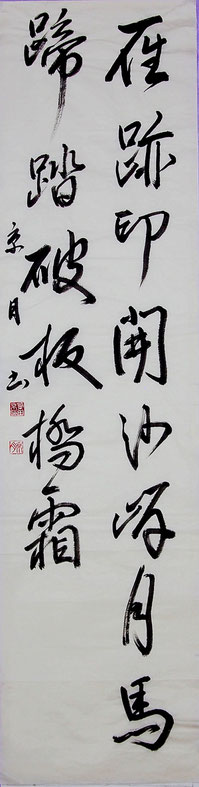 雁跡印開沙岸月馬
蹄踏破板橋霜
京月书